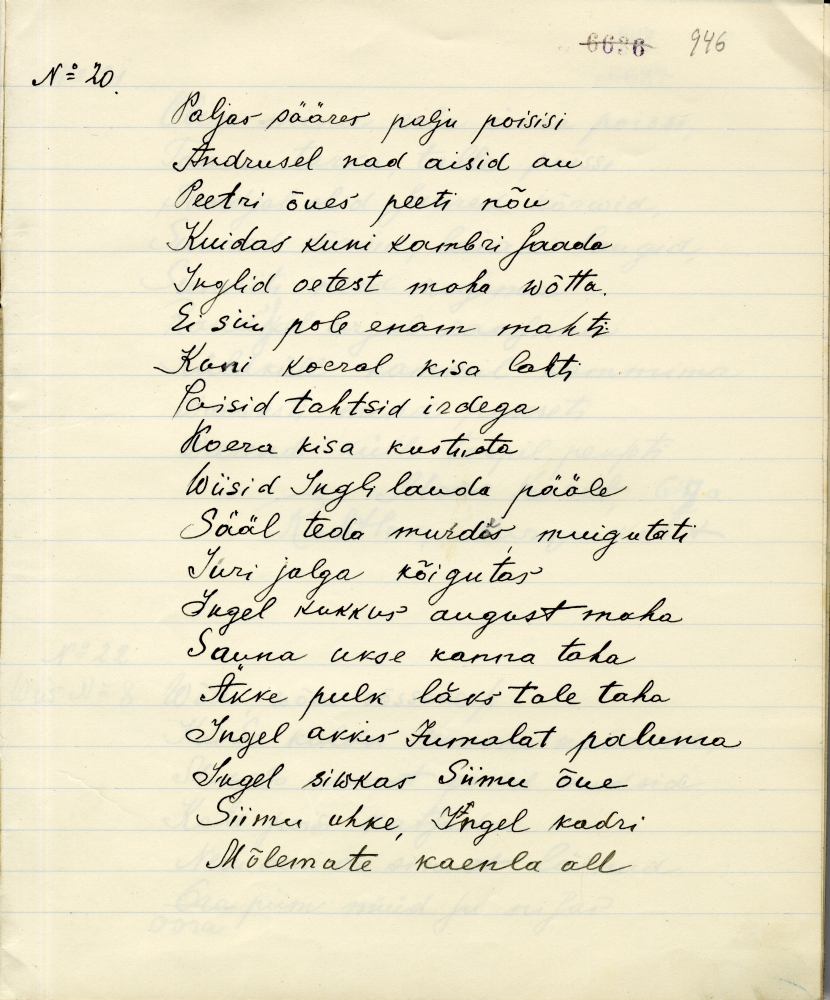 6636 946
№ 20.
Paljas sääres palju poisisi
Andrusel nad aisid au
Peetri õues peeti nõu
Kuidas kuni kambri saada
Inglid oetest maha wõtta.
Ei siin pole enam mahti
Kuni koeral kisa lahti
Poisid tahtsid irdega
Koera kisa kustuta
Wiisid Ingli lauda pääle
Sääl teda murdis, muigutati
Juri jalga kõigutas
Ingel kukkus august maha
Sauna ukse kanna taha
Äkke pulk läks tale taha
Ingel akkas Jumalat paluma
Ingel siwkas Siimu õue
Siimu uhke, Ingel kadri
Mõlemate kaenla all